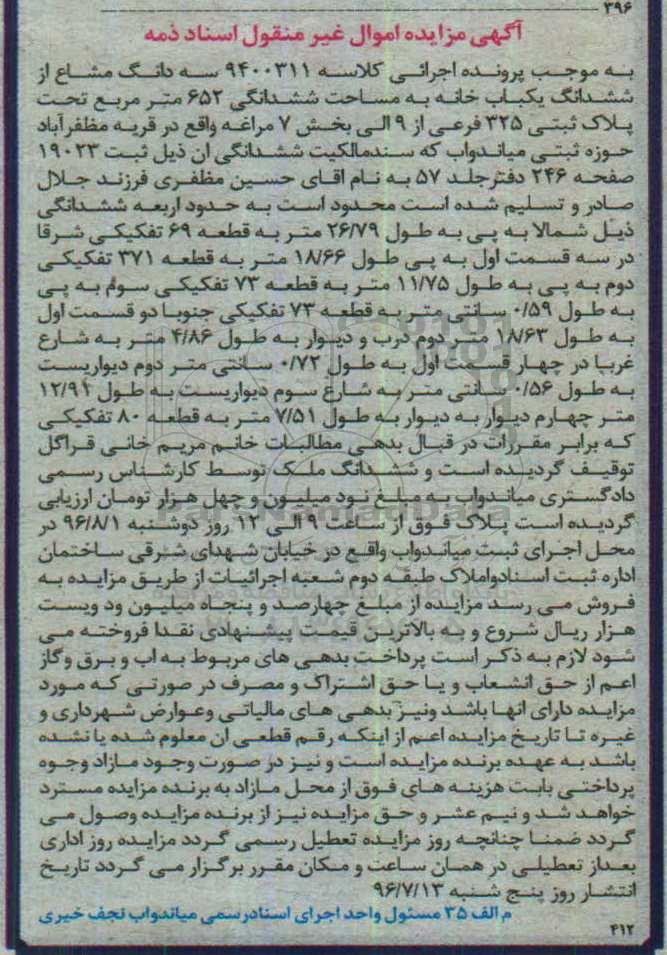 ۳۹۶
آگهی مزایده اموال غیر منقول اسناد ذمه
به موجب پرونده اجرائی کلاسه ۹۴۰۰۳۱۱ سه دانگ مشاع از
ششدانگ یکباب خانه به مساحت ششدانگی ۶۵۲ متر مربع تحت
پلاک ثبتی ۳۲۵ فرعی از ۹ الی بخش ۷ مراغه واقع در قریه مظفرآباد
حوزه ثبتی میاندواب که سندمالکیت ششدانگی ان ذیل ثبت ۱۹۰۲۳
صفحه ۲۴۶ دفترجلد ۵۷ به نام اقای حسین مظفری فرزند جلال
صادر و تسلیم شده است محدود است به حدود اربعه ششدانگی
ذیل شمالا به پی به طول ۲۶/۷۹ متر به قطعه ۶۹ تفکیکی شرقا
در سه قسمت اول به پی طول ۱۸/۶۶ متر به قطعه ۳۷۱ تفکیکی
دوم به پی به طول ۱۱/۷۵ متر به قطعه ۷۳ تفکیکی سوم به پی
به طول ۰/۵۹ سانتی متر به قطعه ۷۳ تفکیکی جنوبا دو قسمت اول
به طول ۱۸/۶۳ متر دوم درب و دیوار به طول ۴/۸۶ متر به شارع
غربا در چهار قسمت اول به طول ۰/۷۲ سانتی متر دوم دیواریست
به طول ۰/۵۶ سانتی متر به شارع سوم دیواریست به طول ۱۲/۹۴
متر چهارم دیوار به دیوار به طول ۷/۵۱ متر به قطعه ۸۰ تفکیکی
که برابر مقررات در قبال بدهی مطالبات خانم مریم خانی قراگل
توقیف گردیده است و ششدانگ ملک توسط کارشناس رسمی
دادگستری میاندواب به مبلغ نود میلیون و چهل هزار تومان ارزیابی
گردیده است پلاک فوق از ساعت ۹ الی ۱۲ روز دوشنبه ۹۶/۸/۱ در
محل اجرای ثبت میاندواب واقع در خیابان شهدای شرقی ساختمان
اداره ثبت اسنادواملاک طبقه دوم شعبه اجرائیات از طریق مزایده به
فروش می رسد مزایده از مبلغ چهارصد و پنجاه میلیون ود ویست
هزار ریال شروع و به بالاترین قیمت پیشنهادی نقدا فروخته می
شود لازم به ذکر است پرداخت بدهی های مربوط به اب و برق وگاز
اعم از حق انشعاب و یا حق اشتراک و مصرف در صورتی که مورد
مزایده دارای انها باشد ونیز بدهی های مالیاتی وعوارض شهرداری و
غیره تا تاریخ مزایده اعم از اینکه رقم قطعی ان معلوم شده یا نشده
باشد به عهده برنده مزایده است و نیز در صورت وجود مازاد وجوه
پرداختی بابت هزینه های فوق از محل مازاد به برنده مزایده مسترد
خواهد شد و نیم عشر و حق مزایده نیز از برنده مزایده وصول می
گردد ضمنا چنانچه روز مزایده تعطیل رسمی گردد مزایده روز اداری
بعداز تعطیلی در همان ساعت و مکان مقرر برگزار می گردد تاریخ
انتشار روز پنج شنبه ۹۶/۷/۱۳
م الف ۳۵ مسئول واحد اجرای اسنادرسمی میاندواب نجف خیری
۴۱۲
ParsNamadData